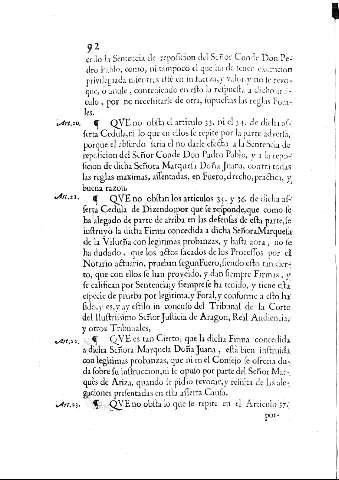 92
cedo la Sentencia de reposicion del Señor Conde Don Pe-
dro Pablo, como, ni tampoco el que ha de tener execucion
privilegiada mientras esté en su fuerza, y valor, y no se revo-
que, o anule, conteniendo en esto la respuesta a dicho arti-
culo, por no necessitarse de otra, supuestas las reglas Fora-
les.
Art.20. ¶ QVE no obsta el articulo 33. ni el 34. de dicha as-
serta Cedula, ni lo que en ellos se repite por la parte adversa,
porque el absurdo seria el no darle efecto a la Sentencia de
reposicion del Señor Conde Don Pedro Pablo, y a la repo-
sicion de dicha Señora Marquesa Doña Juana, contra todas
las reglas maximas, assentadas, en Fuero, drecho, practica, y
buena razon.
Art.21. ¶ QVE no obstan los articulos 35. y 36. de dicha as-
serta Cedula de Dizendo por que se responde, que como se
ha alegado de parte de arriba en las defensas de esta parte, se
instruyò la dicha Firma concedida a dicha Señora Marquesa
de la Vilueña con legitimas probanzas, y hasta aora, no se
ha dudado, que los actos sacados de los Processos por el
Notario actuario, pruevan segun Fuero, siendo esto tan cier-
to, que con ellos se han proveido, y dan siempre Firmas, y
se califican por Sentencia; y siempre se ha tenido, y tiene esta
especie de prueba por legitima, y Foral, y conforme a esto ha
sido, y es, y ay estilo inconcuso del Tribunal de la Corte
del Ilustrissimo Señor Justicia de Aragon, Real Audiencia,
y otros Tribunales.
Art.22. ¶ QVE es tan Cierto, que la dicha Firma concedida
a dicha Señora Marquesa Doña Juana, està bien instruida
con legitimas probanzas, que ni en el Consejo se ofrecio du-
da sobre su instruccion, ni se opuso por parte del Señor Mar-
qués de Ariza, quando se pidio revocar, y resulta de las ale-
gaciones presentadas en esta asserta Causa.
Art.23. ¶ QVE no obsta lo que se repite en el Articulo 37.
por-